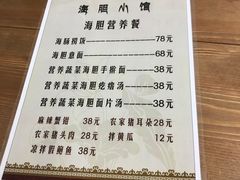 海胆小馆
海胆营养餐
海肠捞饭 78元
海胆意面 58元
营养蔬菜海胆手擀面 38元
营养蔬菜海胆疙瘩汤 38元
营养蔬菜海胆面片汤 38元
麻辣蟹钳 38元 农家猪耳朵 28元
农家猪头肉 28元 拌黄瓜 12元
凉拌假鲍鱼 38元